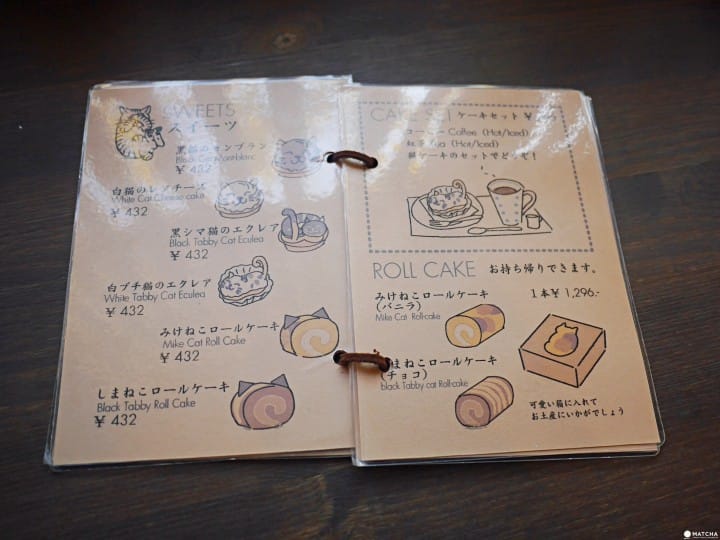 SWEETS
スイーツ
黒猫のモンブラン
Black Cat Mont-blanc
¥ 432
白猫のレアチーズ
White Cat Cheese cake
¥ 432
黒シマ猫のエクレア
Black Tabby Cat Eculea
¥ 432
白ブチ猫のエクレア
White Tabby Cat Eculea
¥ 432
みけねこロールケーキ
Mike Cat Roll Cake
¥ 432
しまねこロールケーキ
Black Tabby Roll Cake
¥ 432
CAKE SET ケーキセット ¥
コーヒー Coffee (Hot/Iced)
紅茶 Tea (Hot/Iced)
猫ケーキのセットでどうぞ!
ROLL CAKE お持ち帰りできます。
みけねこロールケーキ 1本¥ 1,296.-
(バニラ)
Mike Cat Roll-cake
まねこロールケーキ
(チョコ)
black Tabby cat Roll-cake
可愛い猫に入れて
お土産にいかがでしょう
MATCHA